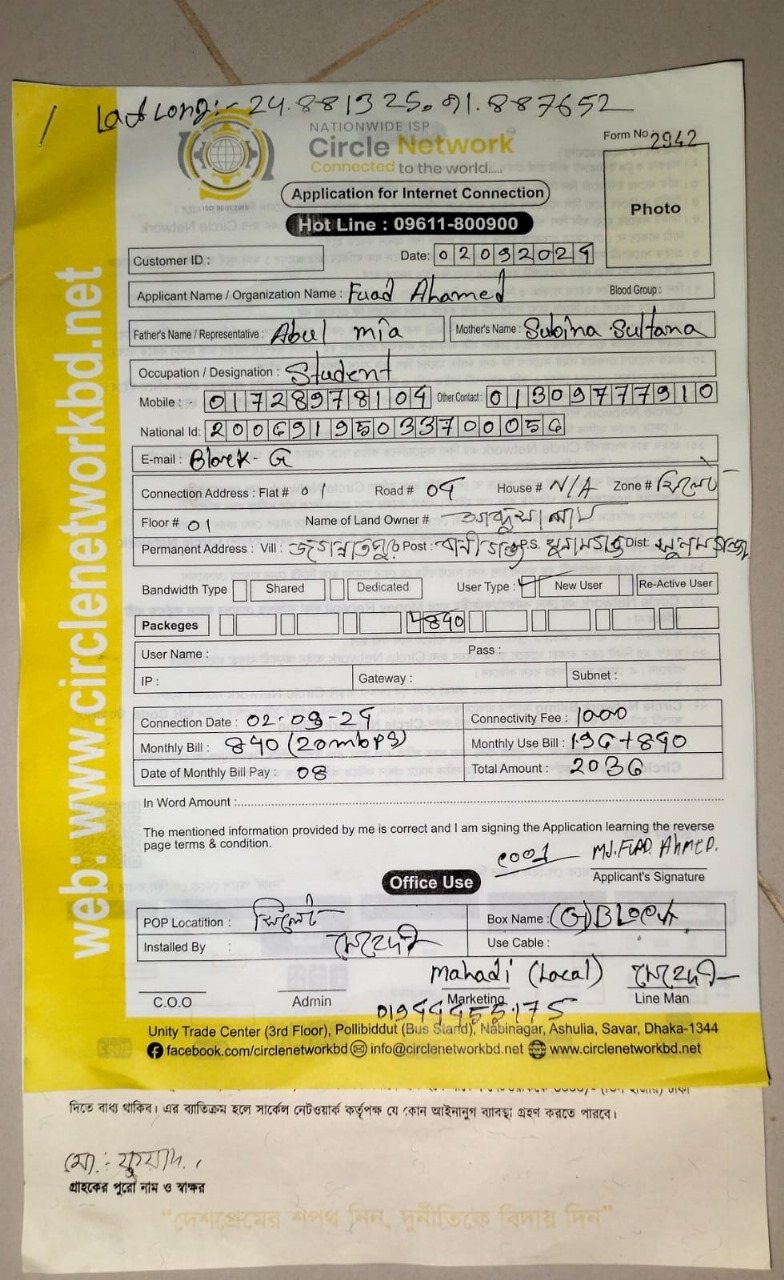 Lat Long:- 24.881325, 91.887652
NATIONWIDE ISP
Circle Network
Connected to the world.....
Form No 2942
Photo
Application for Internet Connection
Hot Line : 09611-800900
Customer ID :
Date: 02092024
Applicant Name / Organization Name : Fuad Ahamed Blood Group :
Father's Name / Representative : Abul mia Mother's Name : Subina Sultana
Occupation / Designation : Student
Mobile : - 01728978104 Other Contact : 01309777910
National Id: 20069195033700056
E-mail : Block- G
Connection Address : Flat # 01 Road # 04 House # N/A Zone # সিলেট
Floor # 01 Name of Land Owner #
Permanent Address : Vill : জগন্নাতপুর Post : P.S. সুনামগঞ্জ Dist: সুনামগঞ্জ
Bandwidth Type Shared Dedicated User Type : New User Re-Active User
Packeges 4890
User Name : Pass :
IP : Gateway : Subnet :
Connection Date : 02-09-24 Connectivity Fee : 1000
Monthly Bill : 840 (20mbps) Monthly Use Bill : 196+840
Date of Monthly Bill Pay : 08 Total Amount : 2036
In Word Amount :
The mentioned information provided by me is correct and I am signing the Application learning the reverse
page terms & condition.
MD. FUAD. AHMED.
Applicant's Signature
Office Use
POP Locatition : সিলেট Box Name : (G) BLOCK
Installed By : মেহেদী Use Cable :
Mahadi (Local) মেহেদী
C.O.O Admin Marketing Line Man
01944455175
Unity Trade Center (3rd Floor), Pollibiddut (Bus Stand), Nabinagar, Ashulia, Savar, Dhaka-1344
facebook.com/circlenetworkbd info@circlenetworkbd.net www.circlenetworkbd.net
web: www.circlenetworkbd.net
দিতে বাধ্য থাকিব। এর ব্যতিক্রম হলে সার্কেল নেটওয়ার্ক কর্তৃপক্ষ যে কোন আইনানুগ ব্যবস্থা গ্রহণ করতে পারবে।
মো: ফুয়াদ
গ্রাহকের পুরো নাম ও স্বাক্ষর
"দেশপ্রেমের শপথ নিন, দুর্নীতিকে বিদায় দিন"